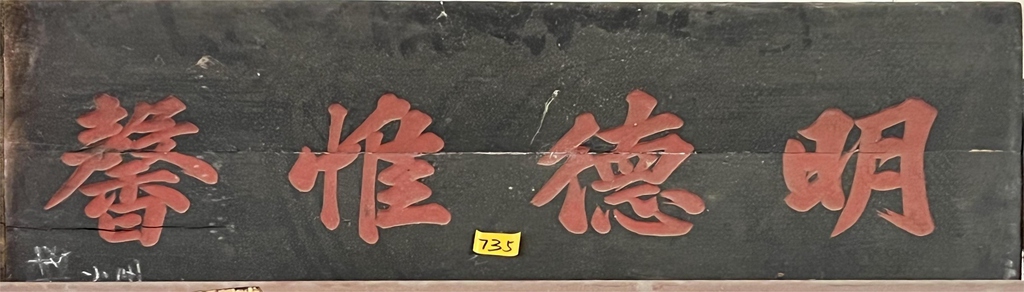 明德惟馨
735